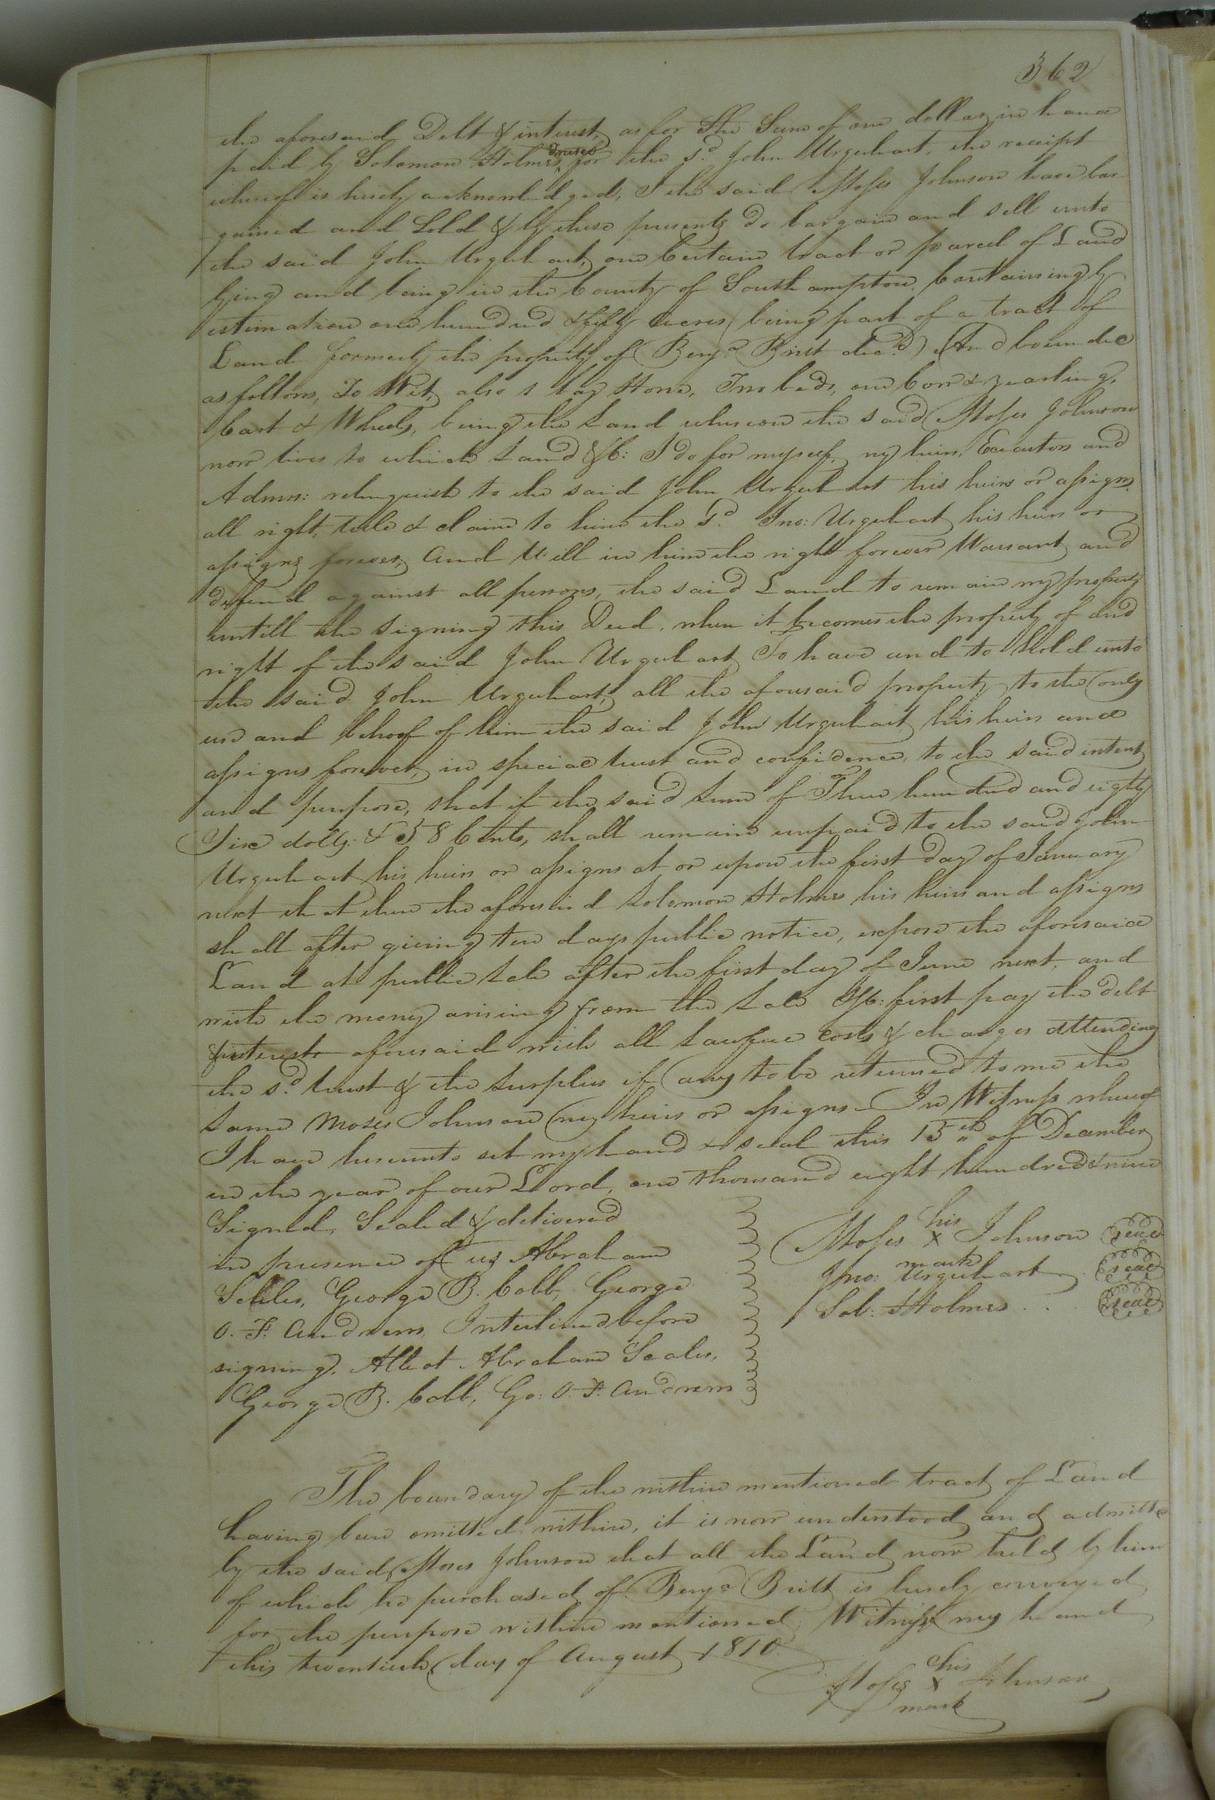 362
the aforesaid Debt & interest, as for the Sum of one dollar, in hand
paid by Solomon Holmes trustee for the sd. John Urquhart, the receipt
whereof is hereby acknowledged, I the said Moses Johnson have bar-
gained and Sold & by these presents do bargain and sell unto
the said John Urquhart, one certain tract or parcel of Land
lying and being in the County of Southampton, containing by
estimation one hundred & fifty acres, being part of a tract of
Land formerly the property of Benja. Britt decd. And bounded
as follows, To Wit, also 1 bay Horse, Two beds, one cow & yearling,
Cart & Wheels, being the Land whereon the said Moses Johnson
now lives to which Land &c: I do for myself, my heirs, Executors and
Admrs: relinquish to the said John Urquhart his heirs or assigns,
all right, title & claim to him the sd. Jno: Urquhart his heirs or
assigns forever, And Will in him the right forever Warrant and
defend against all persons, the said Land to remain my property
untill the signing this Deed, when it becomes the property of and
right of the said John Urquhart, To have and to Hold unto
the said John Urquhart, all the aforesaid property, to the only
use and behoof of him the said John Urquhart his heirs and
assigns forever, in special trust and confidence, to the said intent
and purpose, that if the said sum of Three hundred and eighty
Six dolls. & 58 Cents, shall remain unpaid to the said John
Urquhart his heirs or assigns at or upon the first day of January
next that then the aforesaid Solomon Holmes his heirs and assigns
shall after giving ten days public notice, expose the aforesaid
Land at public sale after the first day of June next, and
with the money arising from the sale &c: first pay the debt
& interest aforesaid with all Lawful costs & charges attending
the sd. trust & the surplus if any to be returned to me the
same Moses Johnson my heirs or assigns. In Witness whereof
I have hereunto set my hand & seal this 15th of December
in the year of our Lord, one thousand eight hundred & nine
Signed, Sealed & delivered
in presence of us, Abraham
Scales, George B. Cobb, George
O. F. Andrews, Interlined before
signing. Attest Abraham Scales,
George B. Cobb, Go: O. F. Andrews
his
Moses X Johnson seal
mark
Jno: Urquhart seal
Sol: Holmes seal
The boundary of the within mentioned tract of Land
having been omitted within, it is now understood and admitted
by the said Moses Johnson that all the Land now held by him
of which he purchased of Benja. Britt is hereby conveyed
for the purpose within mentioned. Witness my hand
this twentieth day of August 1810
his
Moses X Johnson
mark